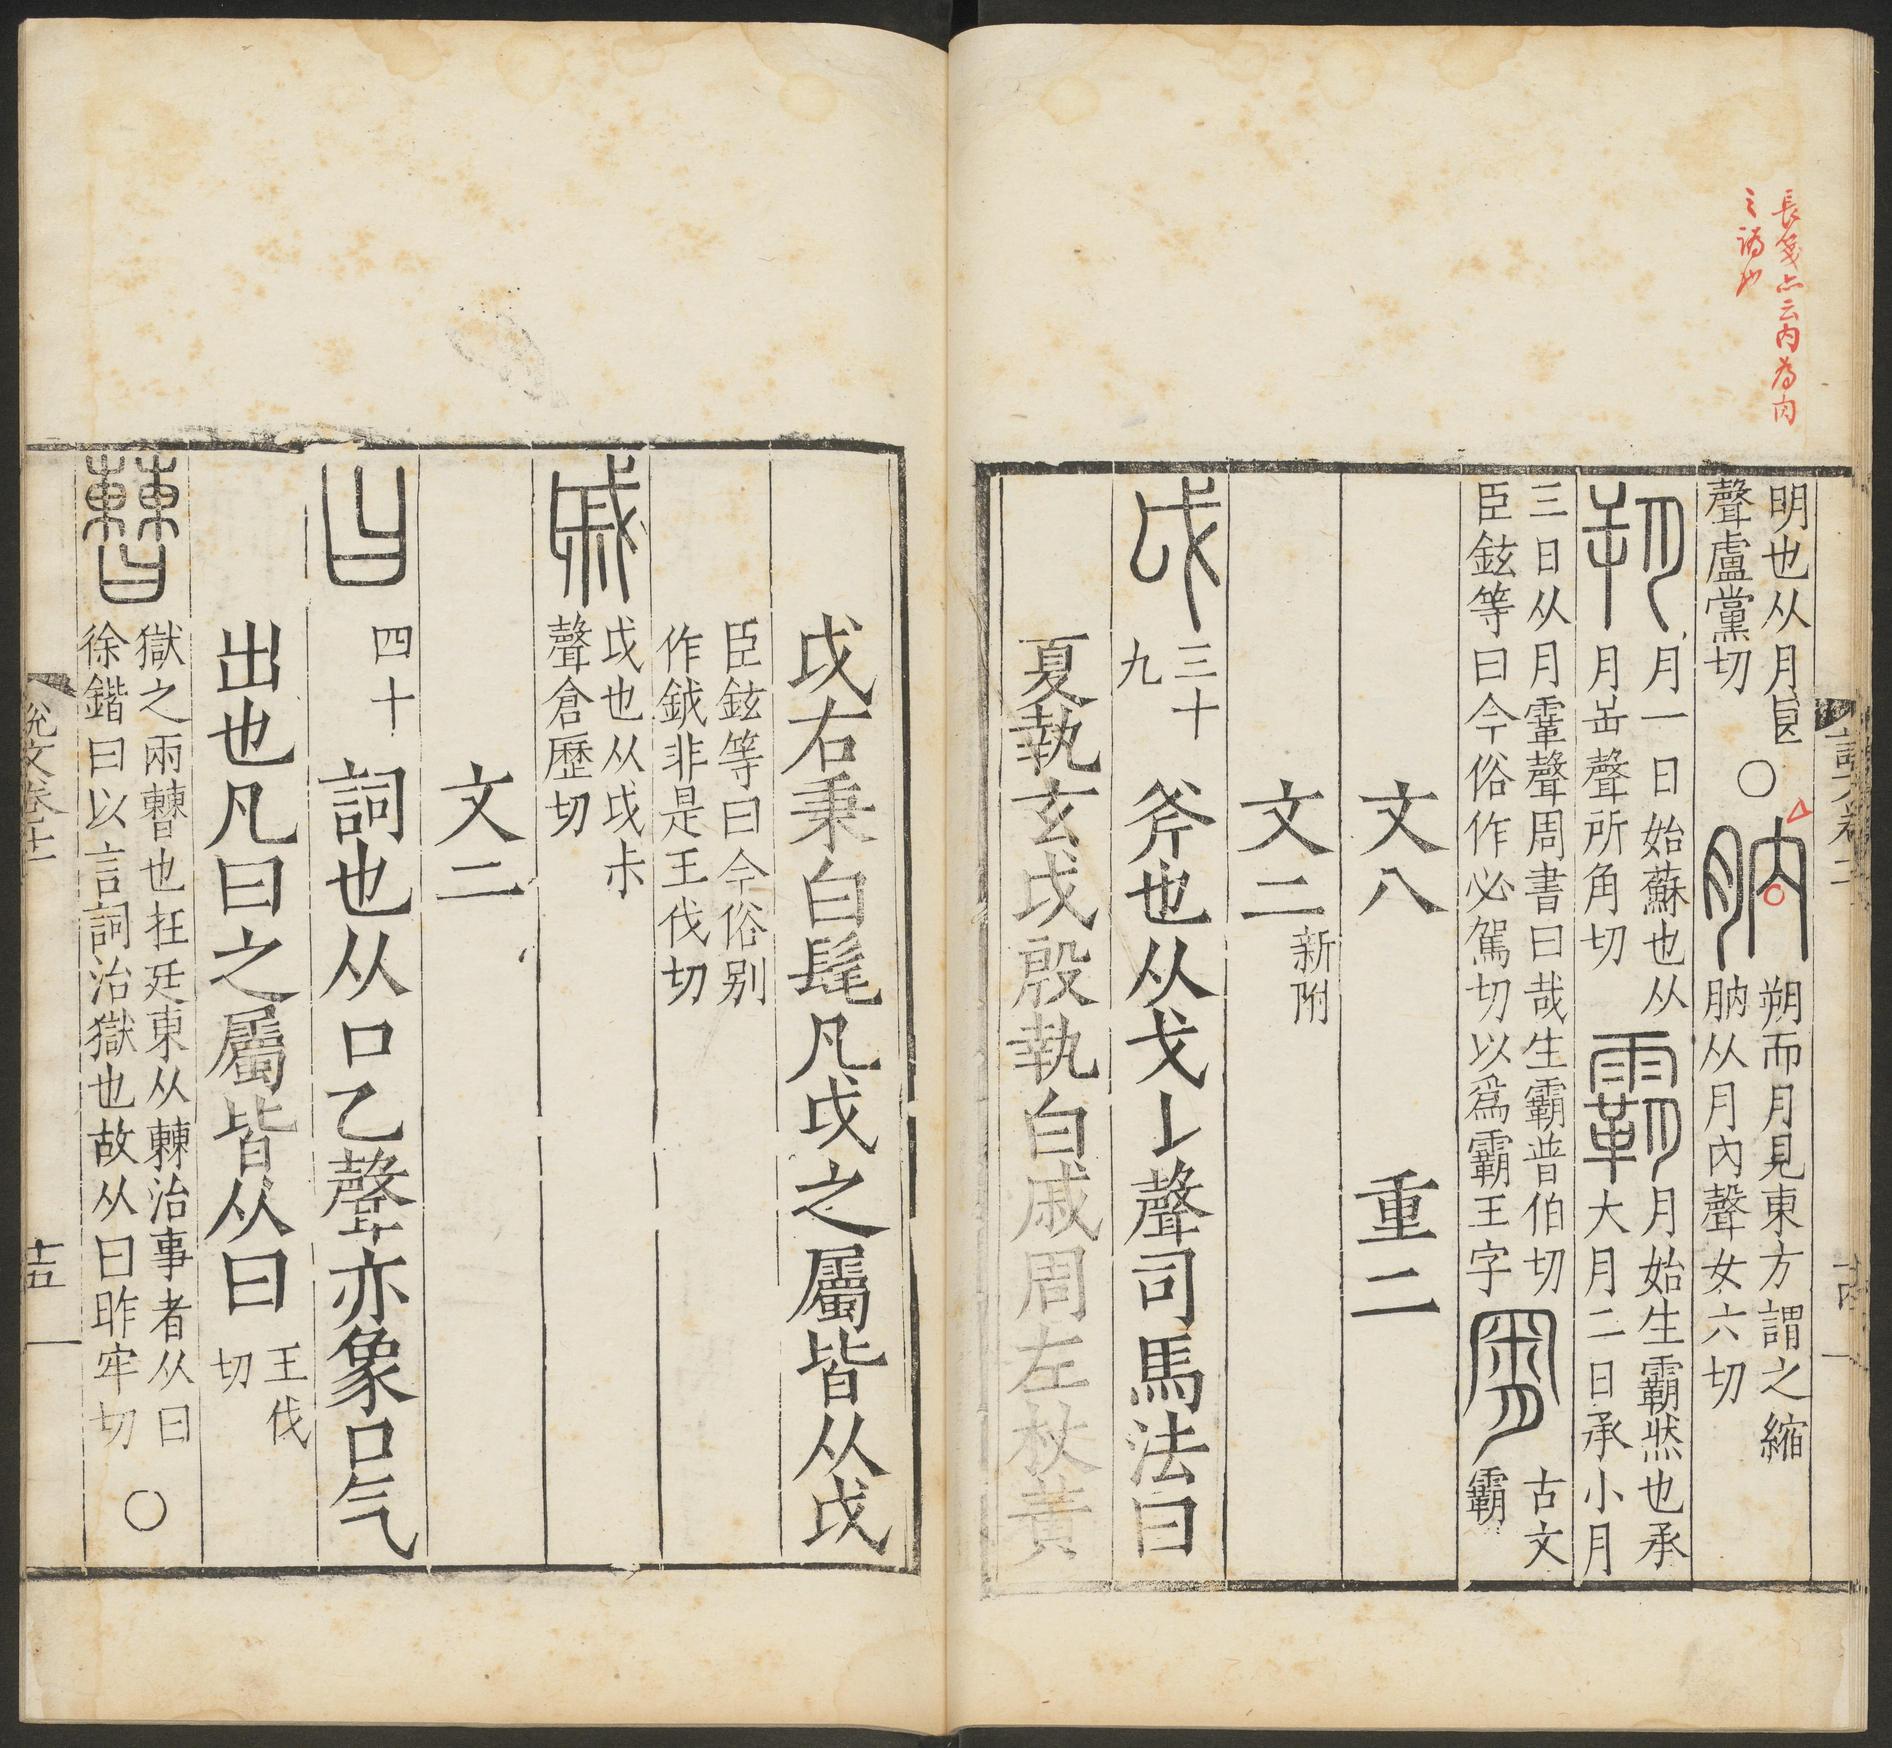 長箋亦云內為肉
之譌也
明也从月良
聲盧黨切
〇
朒
朔而月見東方謂之縮
朒从月內聲女六切
朔
月一日始蘇也从
月屰聲所角切
霸
月始生霸然也承
大月二日承小月
三日从月䨣聲周書曰哉生霸普伯切
臣鉉等曰今俗作必駕切以爲霸王字
古文
霸
文八　重二
文二新附
戉
三十
九
斧也从戈𠄌聲司馬法曰
夏執玄戉殷執白戚周左杖黃
戉右秉白髦凡戉之屬皆从戉
臣鉉等曰今俗别
作鉞非是王伐切
戚
戉也从戉尗
聲倉歷切
文二
曰
四十
詞也从口乙聲亦象口气
出也凡曰之屬皆从曰
王伐
切
𣍘
獄之兩𣍘也在廷東从㯥治事者从曰
徐鍇曰以言詞治獄也故从曰昨牢切
〇
說文卷十二
十五